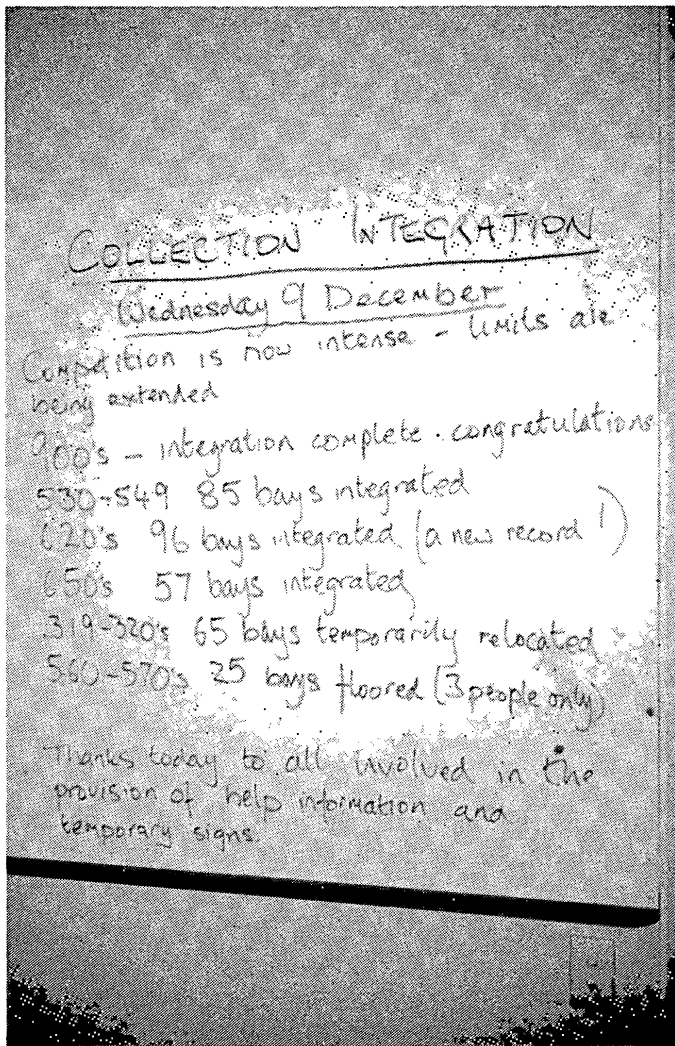 COLLECTION INTEGRATION
Wednesday 9 December
Competition is now intense - limits are
being extended
900's - integration complete. congratulations
530-549 85 bays integrated
620's 96 bays integrated (a new record!)
650's 57 bays integrated
319-320's 65 bays temporarily relocated
560-570's 25 bays floored (3 people only)
Thanks today to all involved in the
provision of help information and
temporary signs.